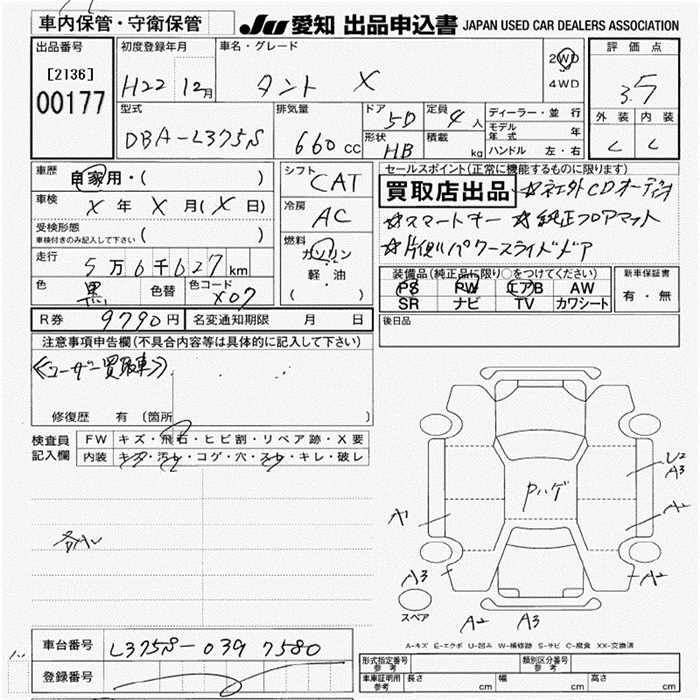 車内保管・守衛保管
JU 愛知 出品申込書 JAPAN USED CAR DEALERS ASSOCIATION
出品番号
[2136]
00177
初度登録年月
H22 12月
車名・グレード
タント X
2WD
4WD
評価点
3.5
外装 内装
C C
型式
DBA-L375S
排気量
660 CC
ドア 5D
形状 HB
定員 4 人
積載 kg
ディーラー・並行
モデル年式 年
ハンドル 左・右
車歴 自家用・( )
車検 X 年 X 月(X 日)
受検形態
車検付きのみ記入して下さい ( )
走行 5万6千627km
色 黒 色替 色コード X07
シフト CAT
冷房 AC
燃料 ガソリン
軽・油
( )
セールスポイント(正常に機能するものに限ります)
買取店出品 ☆社外CDオーディオ
☆スマートキー ☆純正フロアマット
☆片側パワースライドドア
装備品(純正品に限り○をつけてください)
PS PW エアB AW
SR ナビ TV カワシート
新車保証書
有・無
R券 9790円 名変通知期限 月 日
後日品
注意事項申告欄(不具合内容等は具体的に記入して下さい)
≪ユーザー買取車≫
修復歴 有 〔箇所
検査員記入欄
FW キズ・飛石・ヒビ割・リペア跡・X要
内装 キズ・汚れ・コゲ・穴・スレ・キレ・破レ
Pハゲ
U2
A3
A2
A1
A3
A2
スペア
A2 A3
A-キズ E-エクボ U-凹み W-補修跡 S-サビ C-腐食 XX-交換済
車台番号 L375S-0397580
登録番号
形式指定番号 参考
類別区分番号 参考
車庫証明用 参考 長さ cm 幅 cm 高さ cm